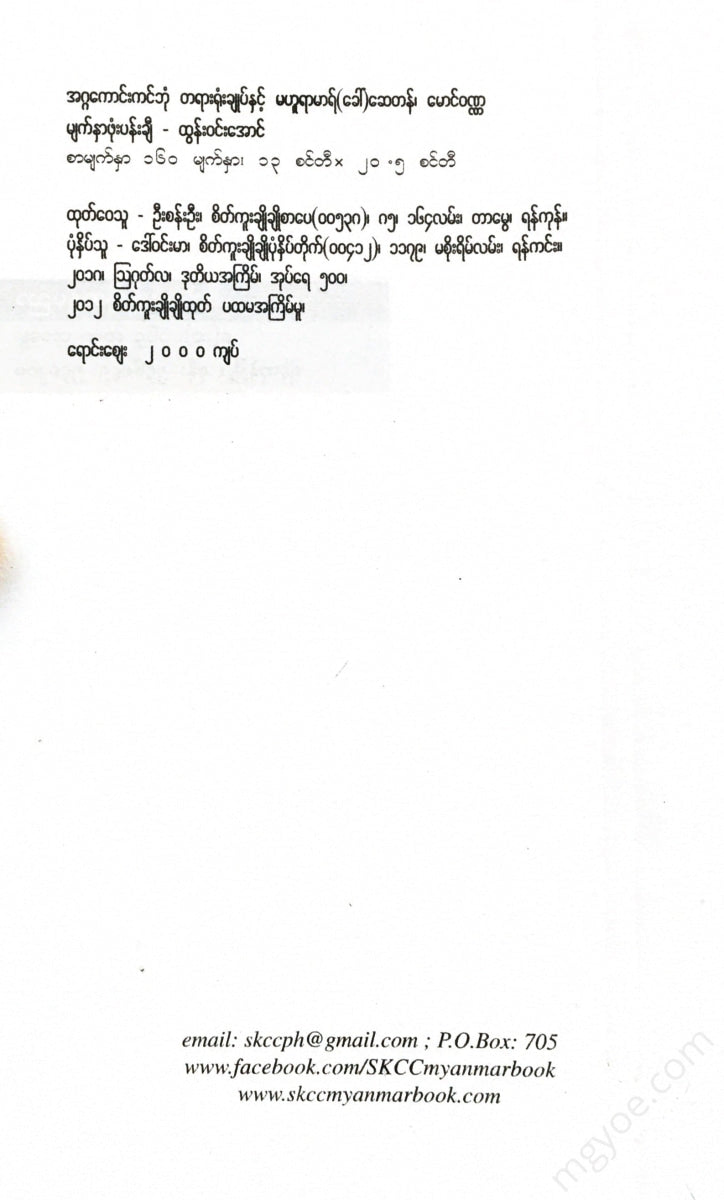 အဂ္ဂကောင်းကင်ဘုံ တရားရုံးချုပ်နှင့် မဟူရာမာရ်(ခေါ်)ဆေတန်၊ မောင်ဝဏ္ဏ
မျက်နှာဖုံးပန်းချီ - ထွန်းဝင်းအောင်
စာမျက်နှာ ၁၆၀ မျက်နှာ၊ ၁၃ စင်တီ× ၂၀.၅ စင်တီ
ထုတ်ဝေသူ - ဦးစန်းဦး၊ စိတ်ကူးချိုချိုစာပေ(၀၀၅၃၈)၊ ၈၅၊ ၁၆၄လမ်း၊ တာမွေ၊ ရန်ကုန်။
ပုံနှိပ်သူ - ဒေါ်ဝင်းမာ၊ စိတ်ကူးချိုချိုပုံနှိပ်တိုက်(၀၀၄၁၂)၊ ၁၁၇၉၊ မစိုးရိမ်လမ်း၊ ရန်ကင်း။
၂၀၁၈၊ ဩဂုတ်လ၊ ဒုတိယအကြိမ်၊ အုပ်ရေ ၅၀၀၊
၂၀၁၂ စိတ်ကူးချိုချိုထုတ် ပထမအကြိမ်မူ၊
ရောင်းဈေး ၂ ၀ ၀ ၀ ကျပ်
email: skccph@gmail.com ; P.O.Box: 705
www.facebook.com/SKCCmyanmarbook
www.skccmyanmarbook.com
mgyoe.com